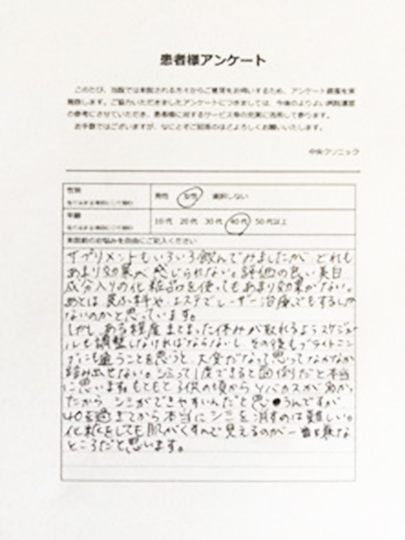 患者様アンケート
このたび、当院では来院される方々からご意見をお伺いするため、アンケート調査を実
施致します。ご協力いただきましたアンケートにつきましては、今後のよりよい病院運営
の参考にさせていただき、患者様に対するサービス等の充実に活用して参ります。
お手数ではございますが、なにとぞご回答のほどよろしくお願いいたします。
中央クリニック
性別
男性 女性 選択しない
年齢
10代 20代 30代 40代 50代以上
来院前のお悩みを自由にご記入ください
サプリメントもいろいろ飲んでみましたが どれも
あまり効果が感じられない。評価の良い美白
成分入りの化粧品を使ってもあまり効果がない。
あとは皮ふ科や、エステでレーザー治療でもするしか
ないのかと思っています。
しかし ある程度 まとまった休みが取れるようスケジュー
ルも調整しなければならないし、その後もブライトニン
グにも通うことを思うと、大変だなって思ってなかなか
踏み出せない。シミって1度できると面倒だと本当
に思います。もともと子供の頃からソバカスが多かっ
たから シミができやすいんだと思うんですが
40を過ぎてから本当にシミを消すのは難しい。
化粧をしても肌がくすんで見えるのが一番嫌な
ところだと思います。